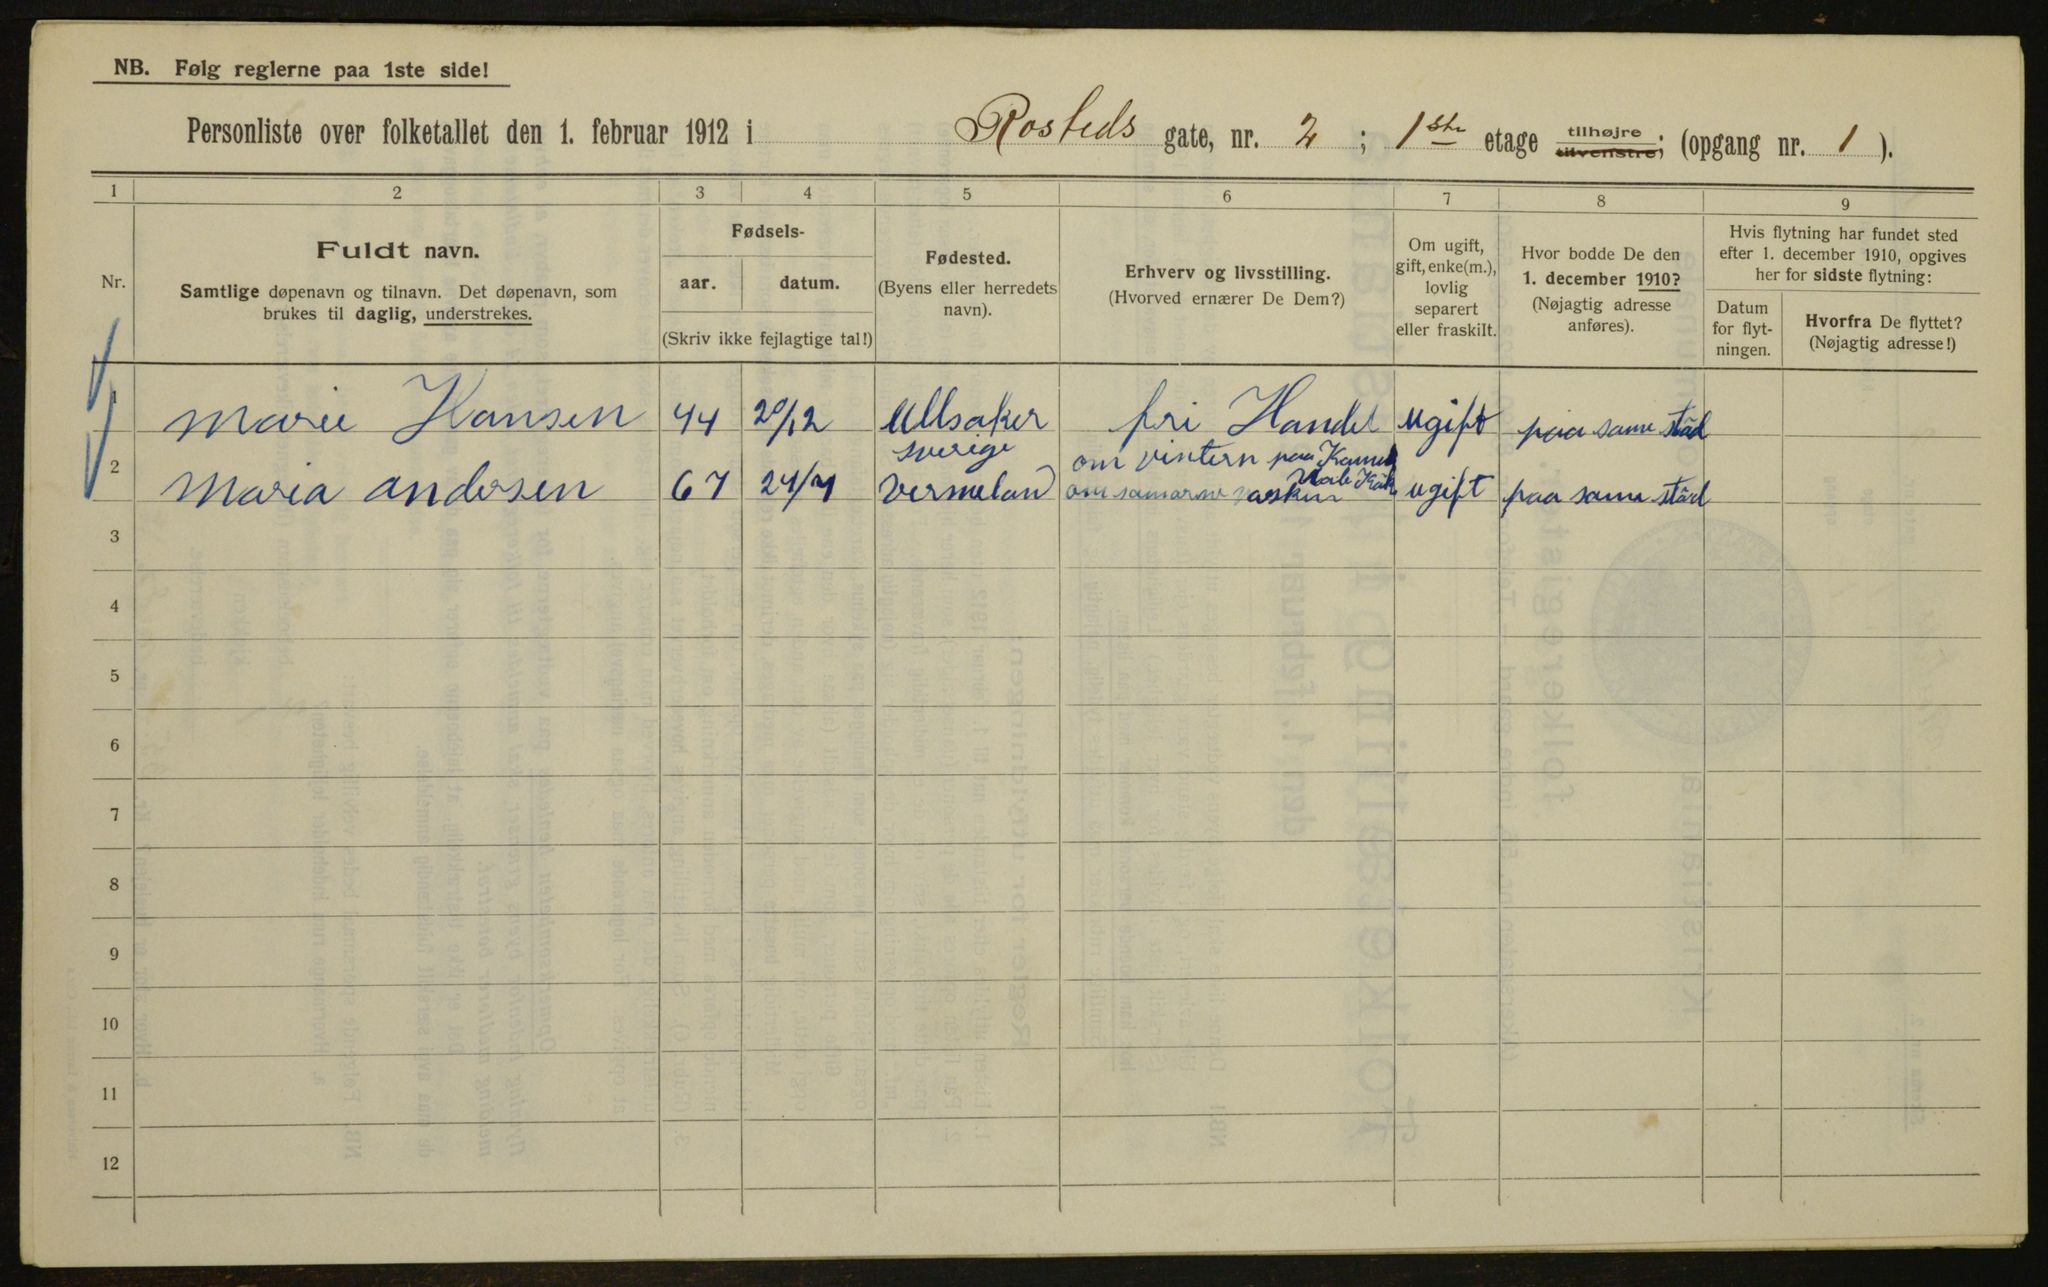 NB. Følg reglerne paa 1ste side!
Personliste over folketallet den 1. februar 1912 i Rosteds gate, nr. 2 ; 1ste etage tilhøjre tilvenstre; (opgang nr. 1 ).
1 2 3 4 5 6 7 8 9
Nr.
Fuldt navn.
Samtlige døpenavn og tilnavn. Det døpenavn, som
brukes til daglig, understrekes.
Fødsels-
aar. datum.
(Skriv ikke fejlagtige tal!)
Fødested.
(Byens eller herredets
navn).
Erhverv og livsstilling.
(Hvorved ernærer De Dem?)
Om ugift,
gift, enke(m.),
lovlig
separert
eller fraskilt.
Hvor bodde De den
1. december 1910?
(Nøjagtig adresse
anføres).
Hvis flytning har fundet sted
efter 1. december 1910, opgives
her for sidste flytning:
Datum
for flyt-
ningen.
Hvorfra De flyttet?
(Nøjagtig adresse!)
1 Marie Hansen 44 20/12 Ullsaker fri Handel ugift paa same städ
sverige om vintern paa
2 Maria andersen 67 24/7 vermelan ugift paa same städ
3
4
5
6
7
8
9
10
11
12